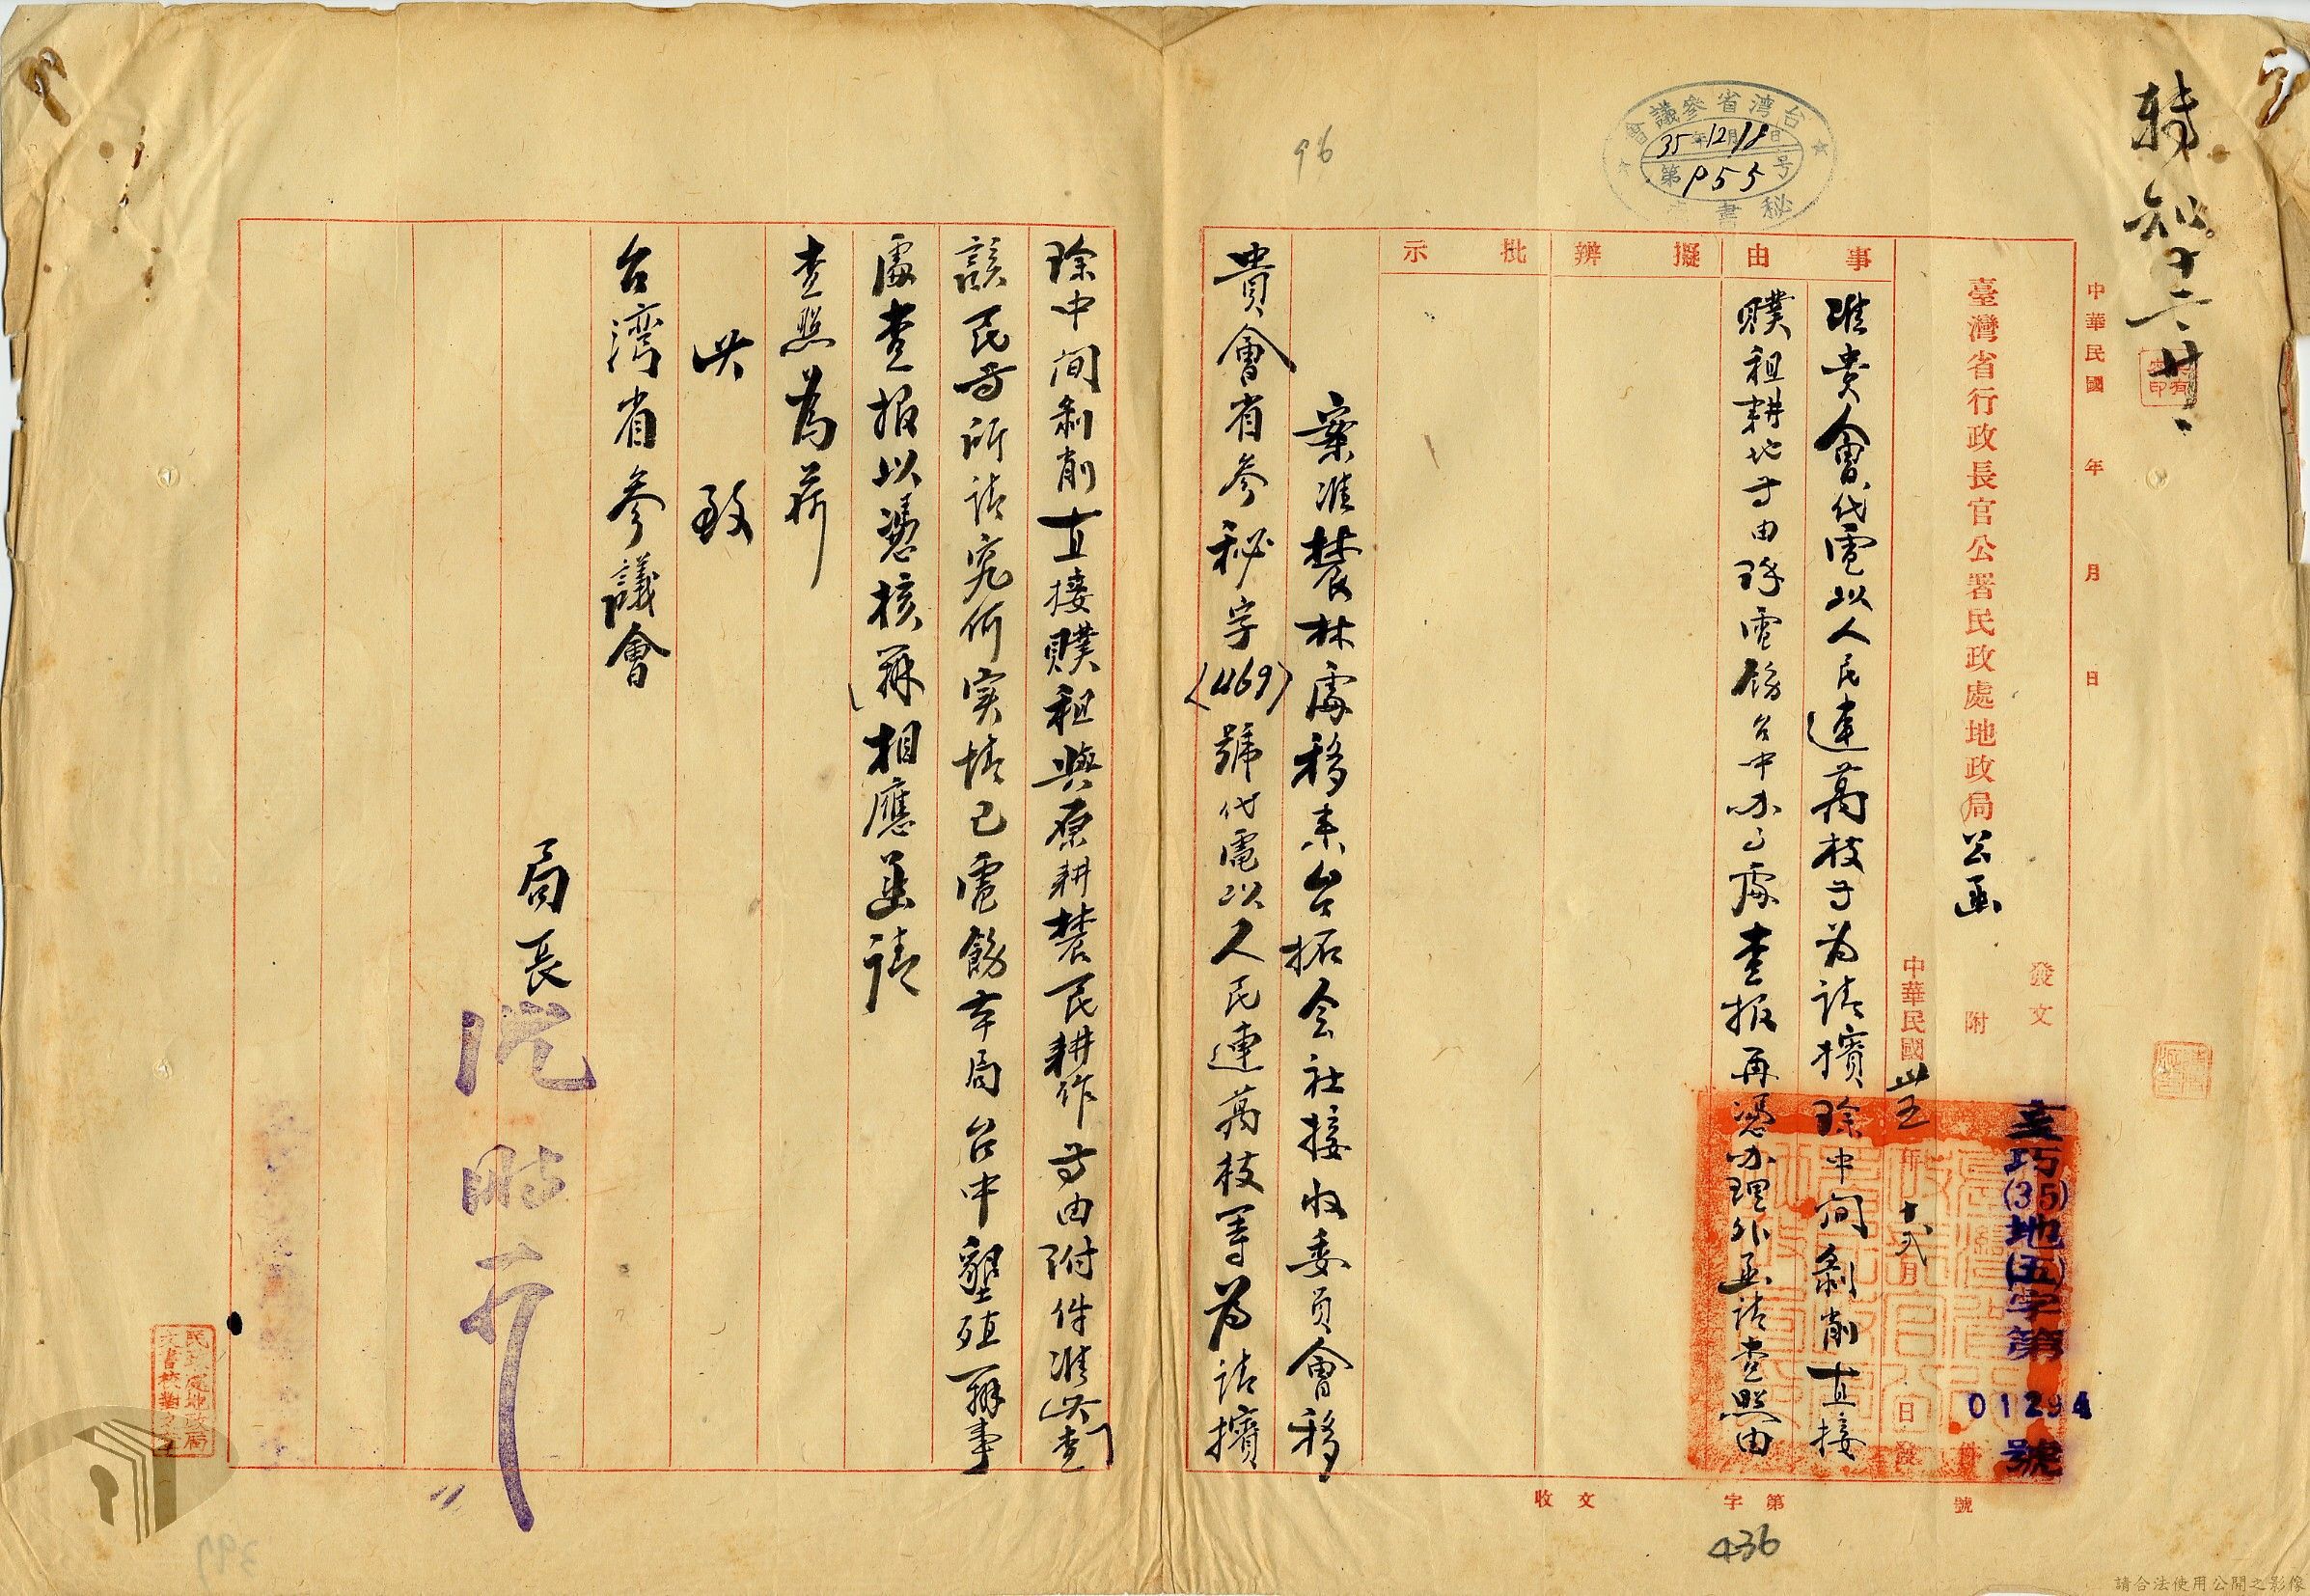 轉知 十二、廿、
中華民國 年 月 日
臺灣省行政長官公署民政處地政局公函
發文
附
亥巧(35)地(五)字第01294號
中華民國卅五年十弍月 日發
事由
准貴會代電以人民連萬枝等為請擯除中間剝削直接
贌租耕地等由除電飭台中办事處查報再憑办理外函請查照由
擬辦
批示
台灣省參議會
35年12月18日
第955号
秘書
96
案准農林處移来台拓会社接收委員會移
貴會省參秘字(469)號代電以人民連萬枝等為請擯
除中间剝削直接贌租與原耕農民耕作等由附件准此查
該民等所請究何实情已電飭本局台中墾殖辦事
處查报以憑核辦相應函請
查照為荷
此致
台灣省參議會
局長 沈時可
民政處地政局
文書校對之章
收文 字第 號
436
397
請合法使用公開之影像